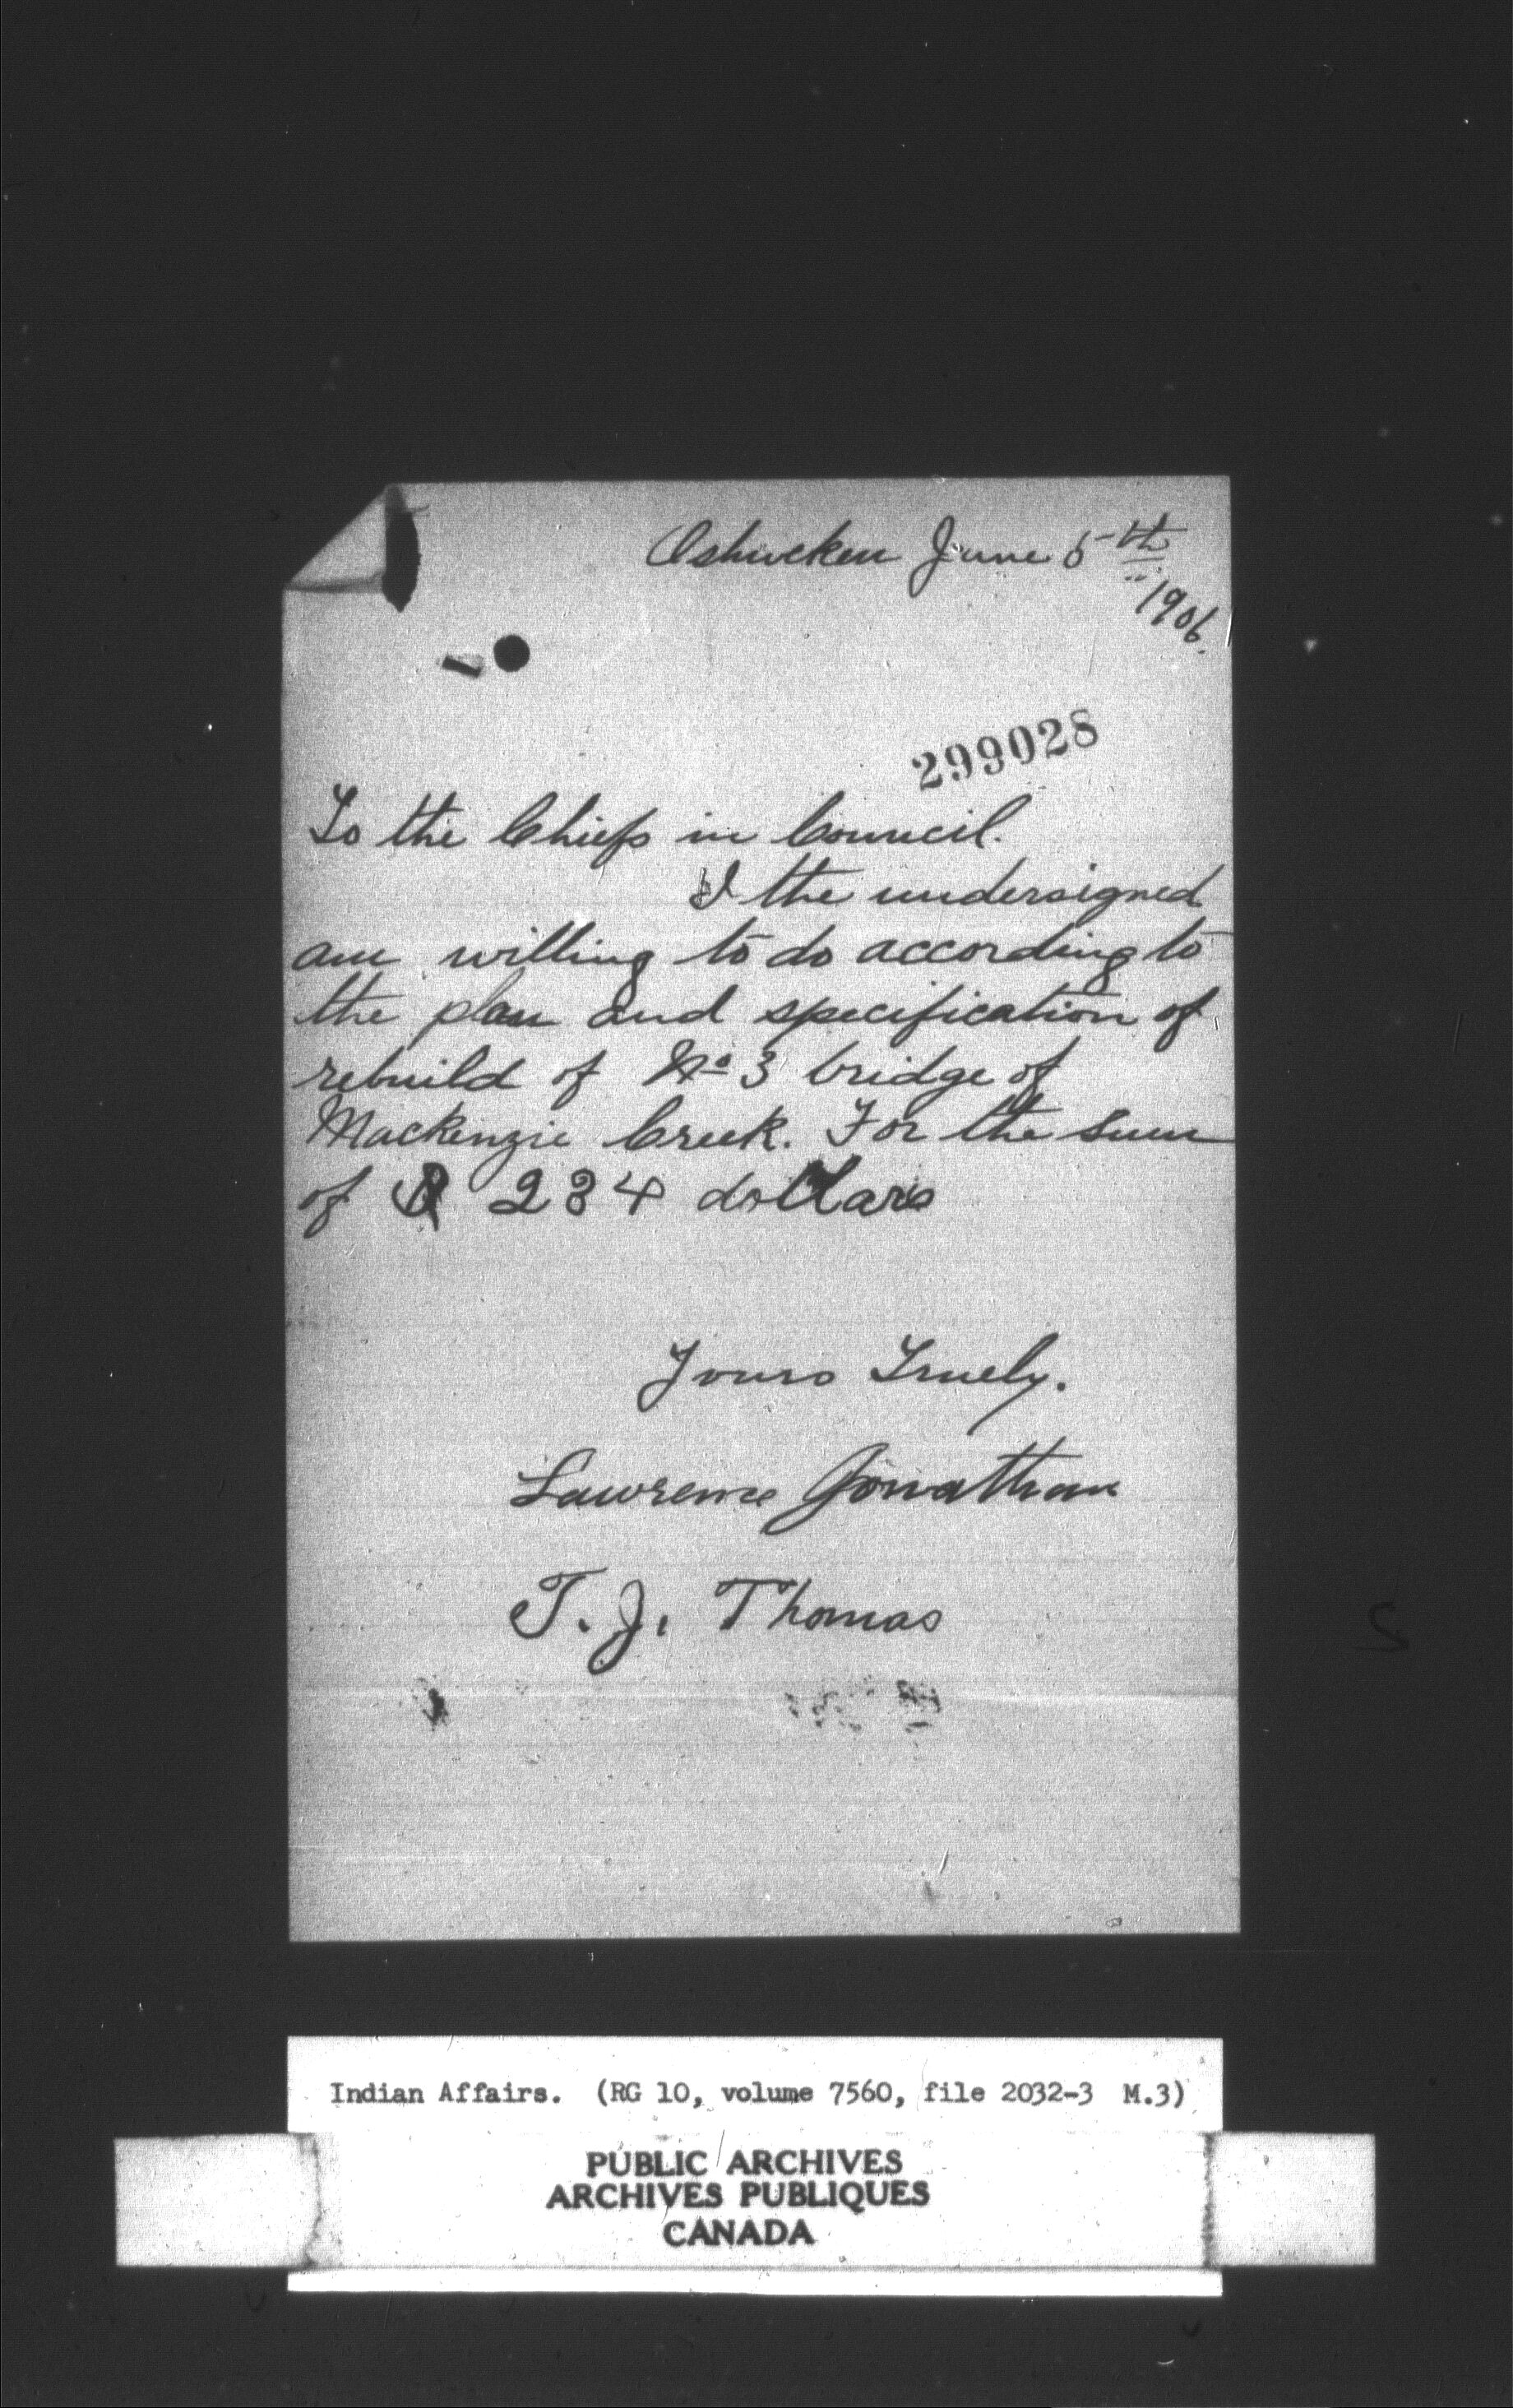 Oshweken June 5th
1906.
299028
To the Chiefs in Council.
I the undersigned
am willing to do according to
the plan and specification of
rebuild of No 3 bridge of
Mackenzie Creek. For the sum
of $ 234 dollars
Yours Truely.
Lawrence Jonathan
T. J. Thomas
Indian Affairs. (RG 10, volume 7560, file 2032-3 M.3)
PUBLIC ARCHIVES
ARCHIVES PUBLIQUES
CANADA